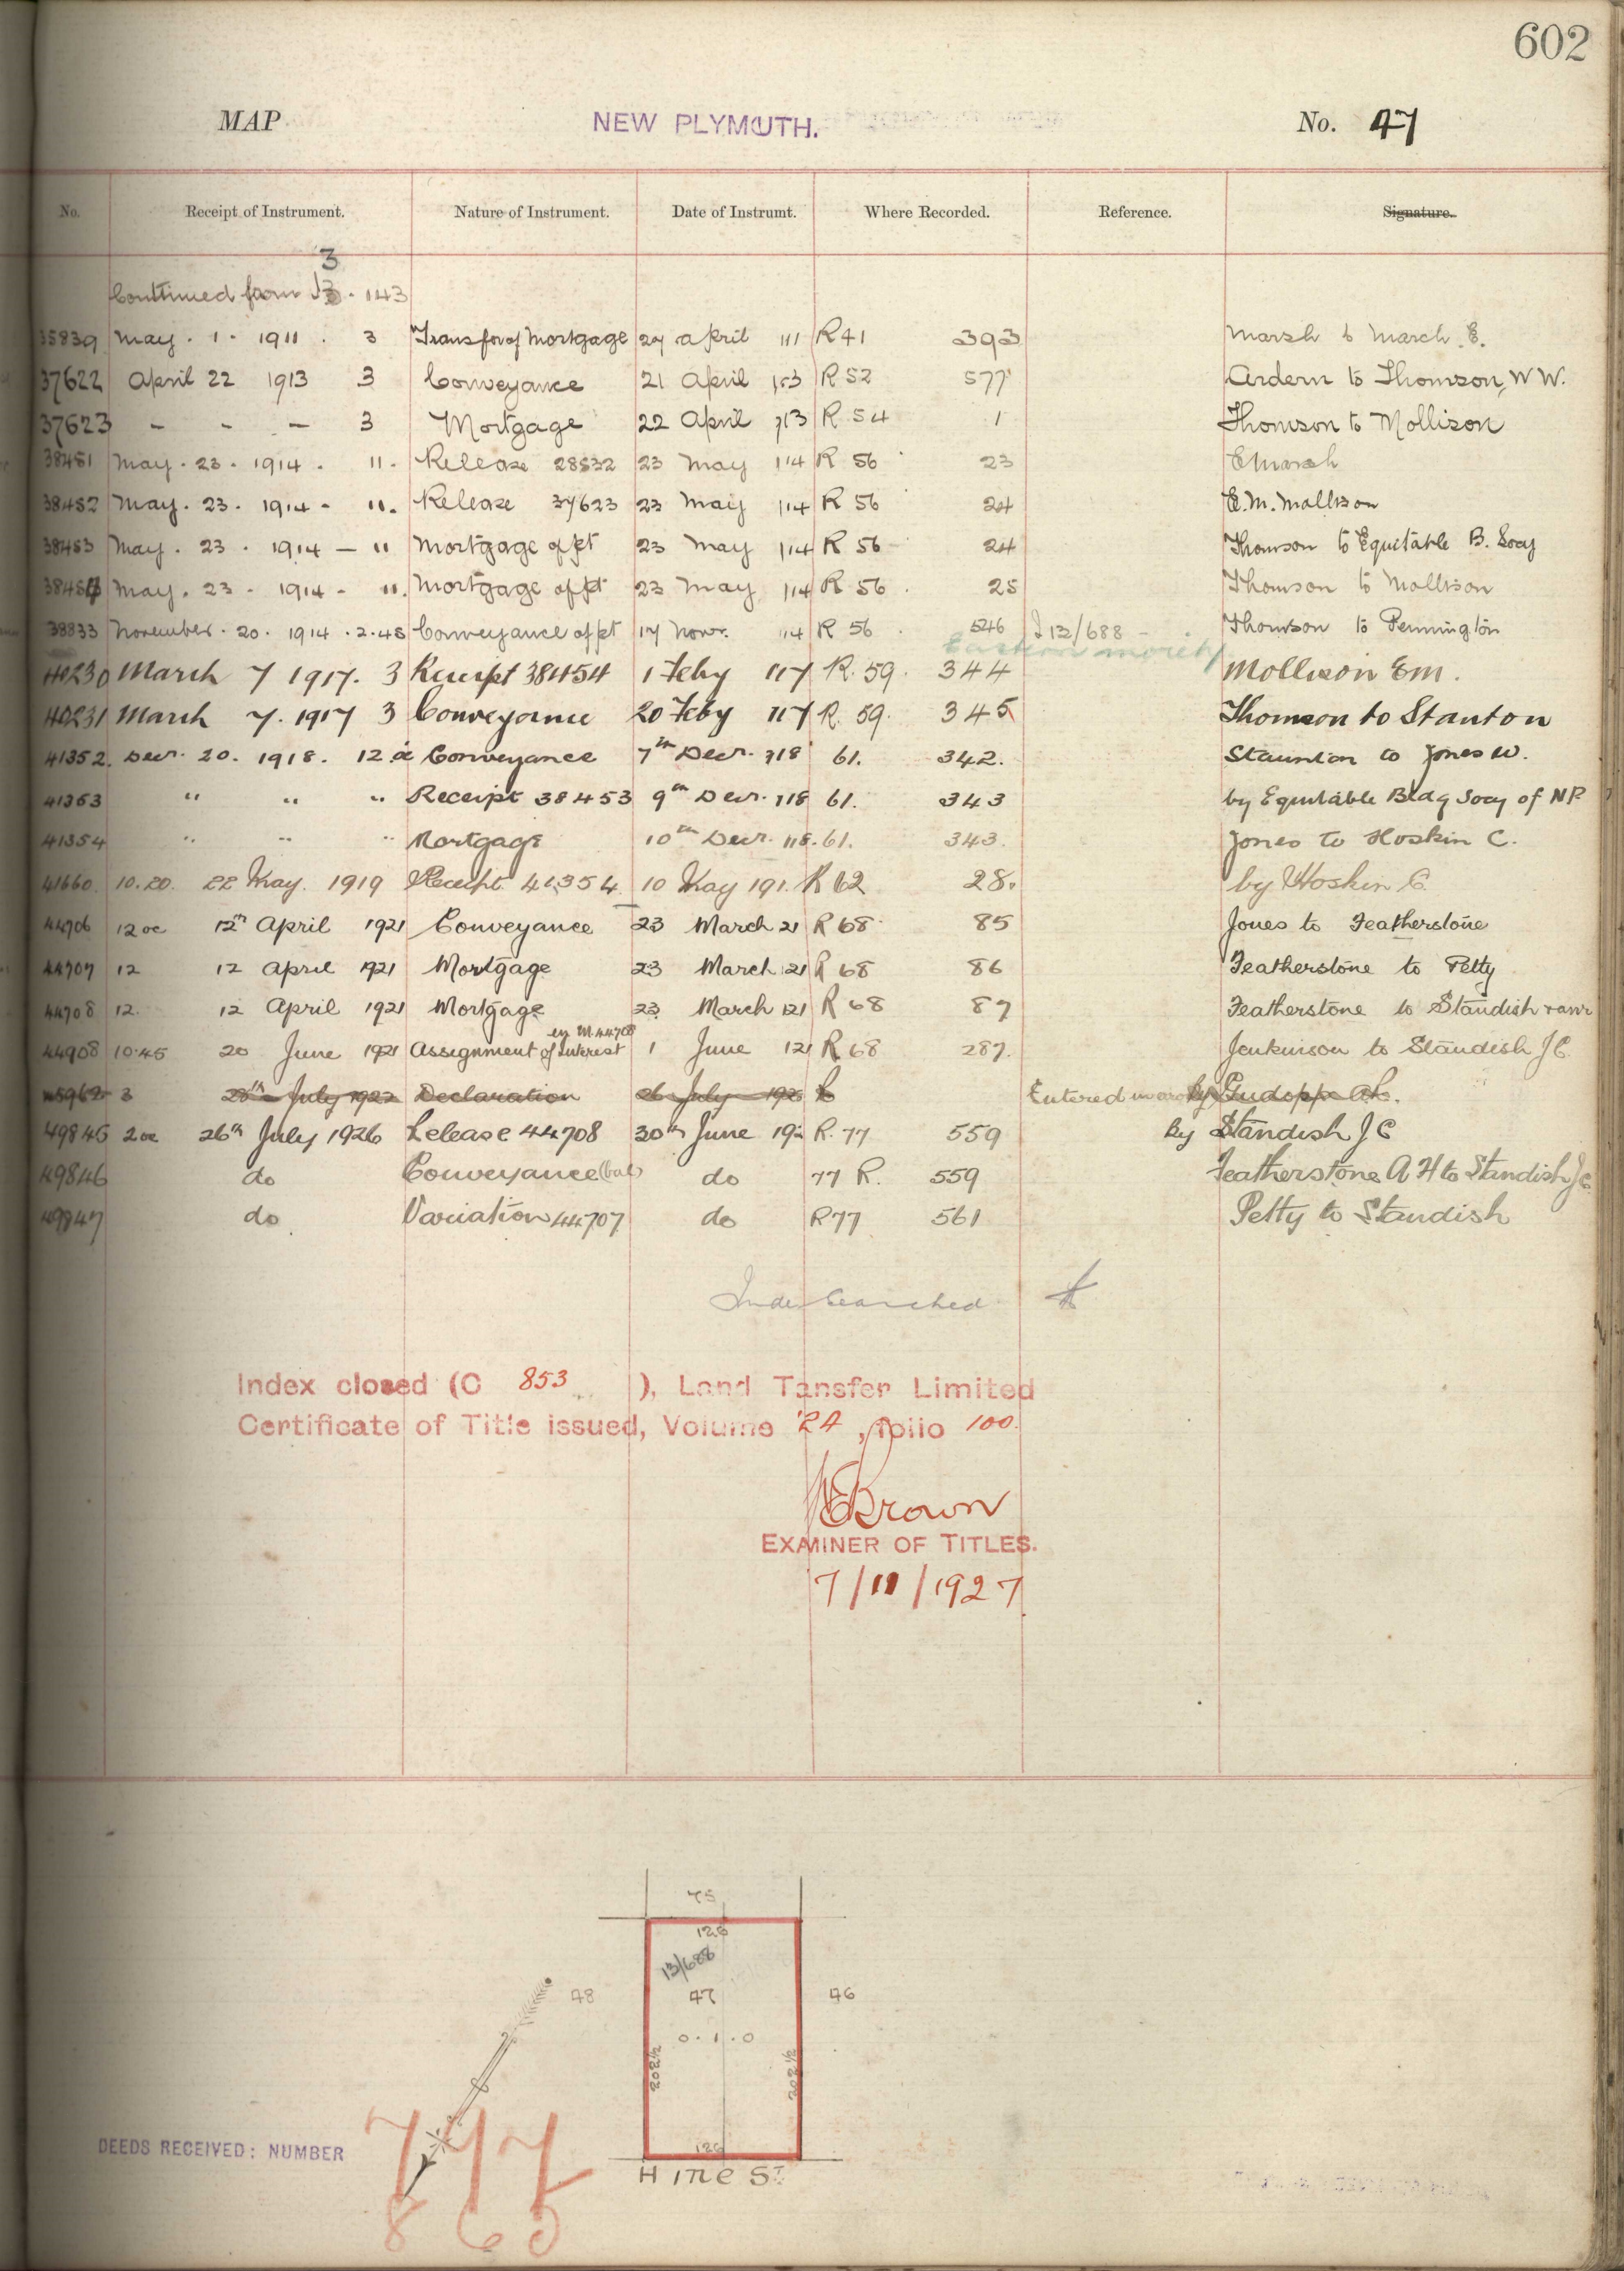 602
MAP NEW PLYMOUTH. No. 47
No. Receipt of Instrument. Nature of Instrument. Date of Instrumt. Where Recorded. Reference. Signature.
3
Continued from 143
35839 May . 1 . 1911 . 3 Transfer of Mortgage 29 april /11 R41 393 Marsh to March E.
37622 April 22 1913 3 Conveyance 21 April /13 R 52 577 Ardern to Thomson, W W.
37623 - - - 3 Mortgage 22 April /13 R 54 1 Thomson to Mollison
38451 May . 23 . 1914 . 11 . Release 28532 23 May /14 R 56 23 E Marsh
38452 May . 23 . 1914 - 11 . Release 37623 23 May /14 R 56 24 E. M. Mallison
38453 May . 23 . 1914 - 11 Mortgage of pt 23 May /14 R 56 - 24 Thomson to Equitable B. Socy
38454 May . 23 . 1914 - 11 . Mortgage of pt 23 May /14 R 56 . 25 Thomson to Mollison
38833 November . 20 . 1914 . 2.45 Conveyance of pt 17 Novr. /14 R 56 . 546 I 13/688 - Thomson to Pennington
Eastern moiety
40230 March 7 1917. 3 Receipt 38454 1 Feby /17 R. 59. 344 Mollison Em.
40231 March 7. 1917 3 Conveyance 20 Feby /17 R. 59. 345 Thomson to Stanton
41352. Decr. 20. 1918. 12 oc Conveyance 7th Decr. /18 61. 342. Staunton to Jones W.
41353 " " " Receipt 38453 9th Decr. /18 61. 343 by Equitable Bldg Socy of NP
41354 " " " Mortgage 10th Decr. /18. 61. 343. Jones to Hoskin C.
41660 10.20. 22 May. 1919 Receipt 41354 10 May 191. R 62 28. by Hoskin C.
44706 12 oc 12th April 1921 Conveyance 23 March 21 R 68 85 Jones to Featherstone
44707 12 12 April 1921 Mortgage 23 March /21 R 68 86 Featherstone to Petty
44708 12. 12 April 1921 Mortgage 23 March /21 R 68 87 Featherstone to Standish + anr
in M. 44708
44908 10.45 20 June 1921 Assignment of Interest 1 June /21 R 68 287. Jenkinson to Standish J C.
45962 3 28th July 1922 Declaration 26 July 192 R Entered by
49845 2 oc 26th July 1926 Release 44708 30th June 192 R. 77 559 By Standish J C
49846 do Conveyance (bal) do 77 R. 559 Featherstone A H to Standish J C
49847 do Variation 44707 do R77 561 Petty to Standish
Index Searched
Index closed (C 853 ), Land Tansfer Limited
Certificate of Title issued, Volume R4 , folio 100.
Brown
EXAMINER OF TITLES.
7/11/1927
75
126
13/688
48 47 46
0 . 1 . 0
202½ 202½
126
HINE ST.
DEEDS RECEIVED: NUMBER 797
865